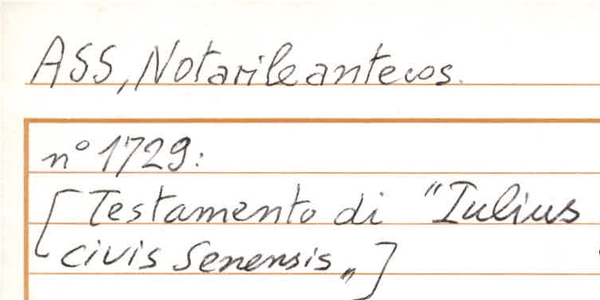 ASS, Notarile antecos.
n° 1729:
[Testamento di "Iulius
civis Senensis„]